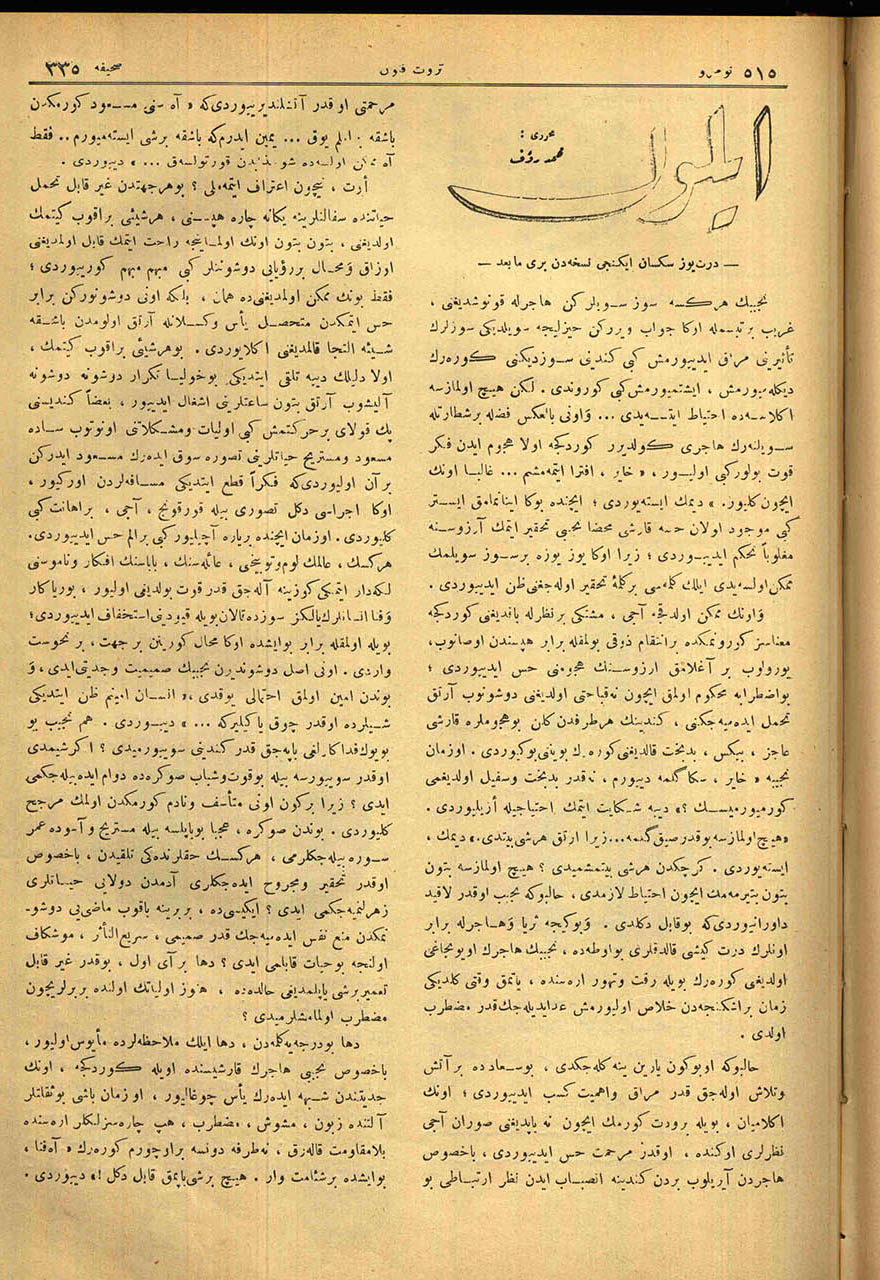 نومرو ٥١٥
ثروت فنون
صحیفه ٣٣٥
ایلول
محرری :
محمد رؤف
— درت یوز سکسان ایکنجی نسخه‌دن بری مابعد —
نجیبك هرکسه سوز سویلرکن هاجرله قونوشدیغی ،
غریب بر تبسمله اوکا جواب ویررکن حیزلیجه سویلدیکی سوزلرك
تأثیرینی مراق ایدییورمش کبی کندینی سوزدیکنی کوره‌رك
دیکله‌میورمش ، ایشتمیورمش کبی کوروندی . لکن هیچ اولمازسه
اکلاسه‌ده احتیاط ایتسه‌یدی ... وآونی بالعکس فضله برشطارتله
سویلنه‌رك هاجری کولدیرر کوردکجه اولا هجوم ایدن فکر
قوت بولورکبی اولیور ، « خایر ، افترا ایتمه‌مشم ... غالبا اونك
ایچون کلیور . » دیمك ایسته‌یوردی ؛ ایچنده بوکا اینانمامق ایستر
کبی موجود اولان حسه قارشی محضا نجیبی تحقیر ایتمك آرزوسنه
مغلوباً تحکم ایدییوردی ؛ زیرا اوکا یوز یوزه برسوز سویلمك
ممکن اولسه‌یدی ایلك کلمه‌سی برکلمهٔ تحقیر اوله‌جغنی ظن ایدییوردی .
وآونك ممکن اولدقجه آجی ، مشتکی برنظرله باقدیغنی کوردکجه
معناسز کورونمکده برانتقام ذوقی بولمقله برابر هپسندن اوصانوب،
یورولوب بر آغلامق ارزوسنك هجومنی حس ایدییوردی ؛
بواضطرابه محکوم اولمق ایچون نه قباحتی اولدیغنی دوشونوب آرتق
تحمل ایده‌میه‌جکنی ، کندینك هرطرفدن کلن بوهجوملره قارشی
عاجز ، بیکس ، بدبخت قالدیغنی کوره‌رك بوینی بوکیوردی . اوزمان
نجیبه « خایر ، سکا کلمه دییورم ، نه‌قدر بدبخت وسفیل اولدیغمی
کورمیورمیسك ؟» دییه شکایت ایتمك احتیاجیله أزیلیوردی .
«هیچ اولمازسه بوقدر صیق کلمه...زیرا ارتق هرشی بیتدی.» دیمك ،
ایسته‌یوردی . کرچکدن هرشی بیتمشمیدی ؟ هیچ اولمازسه بتون
بتون بیترمه‌مك ایچون احتیاط لازمدی ، حالبوکه نجیب اوقدر لاقید
داورانیوردی‌که بوقابل دکلدی . وبوکیجه ثریا وهاجرله برابر
اونلرك درت کیشی قالدقلری بواوطه‌ده ، نجیبك هاجرك اویونجاغی
اولدیغنی کوره‌رك بویله رقت وتهور اره‌سنده ، یاتمق وقتی کلدیکی
زمان براشکنجه‌دن خلاص اولیورمش عدایدیله‌جك‌قدر مضطرب
اولدی .
حالبوکه اوبوکون یارین ینه کله‌جکدی ، بوسعادده برآتش
وتلاش اوله‌جق قدر مراق واهمیت کسب ایدییوردی ؛ اونك
اکلامیان ، بویله برودت کورمك ایچون نه یاپدیغنی صوران آجی
نظرلری اوکنده ، اوقدر مرحمت حس ایدییوردی ، باخصوص
هاجردن آیریلوب بردن کندینه انصباب ایدن نظر ارتباطی بو
مرحمتی اوقدر آتشلندیرییوردی‌که « آه سنی مسعود کورمکدن
باشقه املم یوق ... یمین ایدرم‌که باشقه برشی ایسته‌میورم .. فقط
آه ممکن اولسه‌ده شو قورتولسه‌ق ... » دییوردی .
أرت ، نیچون اعتراف ایتمه‌ملی ؟ بوهرجهتدن غیر قابل تحمل
حیاتنده سفالتلرینه یکانه چاره هپسنی ، هرشیئی براقوب کیتمك
اولدیغنی ، بتون بتون اونك اولماینجه راحت ایتمك قابل اولمدیغنی
اوزاق ومحال بررؤیایی دوشوننلر کبی مبهم مبهم کورییوردی ؛
فقط بونك ممکن اولمدیغنی‌ده همان ، بلکه اونی دوشونورکن برابر
حس ایتمکدن متحصل یأس وکسلانله آرتق اولومدن باشقه
شیئه التجا قالمدیغنی اکلایوردی . بوهرشیئی براقوب کیتمك ،
اولا دلیلك دییه تلقی ایتدیکی بوخولیا تکرار دوشونه دوشونه
آلیشوب آرتق بتون ساعتلرینی اشغال ایدییور ، بعضاً کندیسنی
پك قولای برحرکتمش کبی اولیات ومشکلاتنی اونوتوب ساده
مسعود ومستریح حیاتلرینی تصوره سوق ایده‌رك مسعود ایدرکن
برآن اولیوردی‌که فکراً قطع ایتدیکی مسافه‌لردن اورکیور ،
اوکا اجراسی دکل تصوری بیله قورقونج ، آجی ، براهانت کبی
کلیوردی . اوزمان ایچنده بریاره آچیلیورکبی برالم حس ایدییوردی.
هرکسك ، عالمك لوم‌وتوبیخی ، عائله‌سنك ، باباسنك افکار وناموسنی
لکه‌دار ایتمکی کوزینه آله‌جق قدر قوت بولدیغنی اولیور ، بوریاکار
وفنا انسانلرك یالکز سوزده قالان بویله قیودینی استخفاف ایدییوردی؛
بویله اولمقله برابر بوایشده اوکا محال کورینن بر جهت ، بر نحوست
واردی . اونی اصل دوشوندیرن نجیبك صمیمیت وجدیتی‌ایدی ، و
بوندن امین اولمق احتمالی یوقدی ، « انسان امینم ظن ایتدیکی
شیلرده اوقدر چوق یاکیلیرکه ... » دییوردی . هم نجیب بو
بویوك فداکارلغی یاپه‌جق قدر کندینی سوییورمیدی ؟ اکرشیمدی
اوقدر سوییورسه بیله بوقوت وشباب صوکره‌ده دوام ایده‌بیله‌جکمی
ایدی ؟ زیرا برکون اونی متأسف ونادم کورمکدن اولمك مرجح
کلیوردی . بوندن صوکره ، عجبا بویاپیلسه بیله مستریح وآسوده عمر
سوره‌بیله‌جکلرمی ، هرکسك حقلرنده‌کی تلقیدن ، باخصوص
اوقدر تحقیر ومجروح ایده‌جکلری آدمدن دولایی حیاتلری
زهرلنمیه‌جکمی ایدی ؟ ایکیسی‌ده ، بربرینه باقوب ماضی‌یی دوشو-
نمکدن منع نفس ایده‌میه‌جك قدر صمیمی ، سریع‌التأثر ، موشکاف
اولنجه بوحیات قابلمی ایدی ؟ دها برآی اول ، بوقدر غیر قابل
تعمیر برشی یاپلمدیغی حالده‌ده ، هنوز اولیاتك اولنده بربرلریچون
مضطرب اولمامشلرمیدی ؟
دها بودرجه‌یه کلمه‌دن ، دها ایلك ملاحظه‌لرده مأیوس‌اولیور ،
باخصوص نجیبی هاجرك قارشیسنده اویله کوردکجه ، اونك
جدیتندن شبهه ایده‌رك یأس چوغالیور ، اوزمان باشی بوثقلتلر
آلتنده زبون ، مشوش ، مضطرب ، هپ چاره‌سزلکلر اره‌سنده
بلامقاومت قاله‌رق ، نه‌طرفه دونسه براوچورم کوره‌رك « آه‌فنا ،
بوایشده برشئامت وار . هیچ برشی یاپمق قابل دکل !» دییوردی .